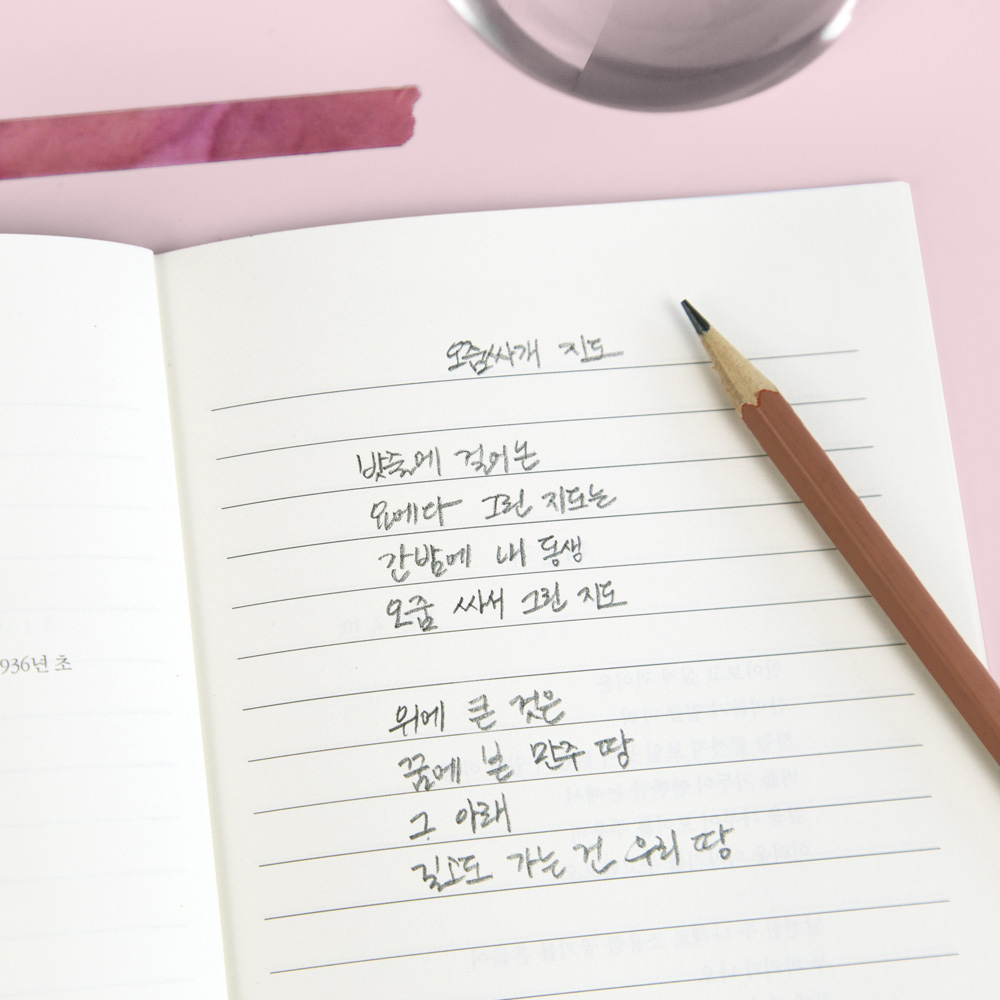 936년 초
오줌싸개 지도
밧줄에 걸어논
요에다 그린 지도는
간밤에 내 동생
오줌 싸서 그린 지도
위에 큰 것은
꿈에 본 만주 땅
그 아래
길고도 가는 건 우리 땅